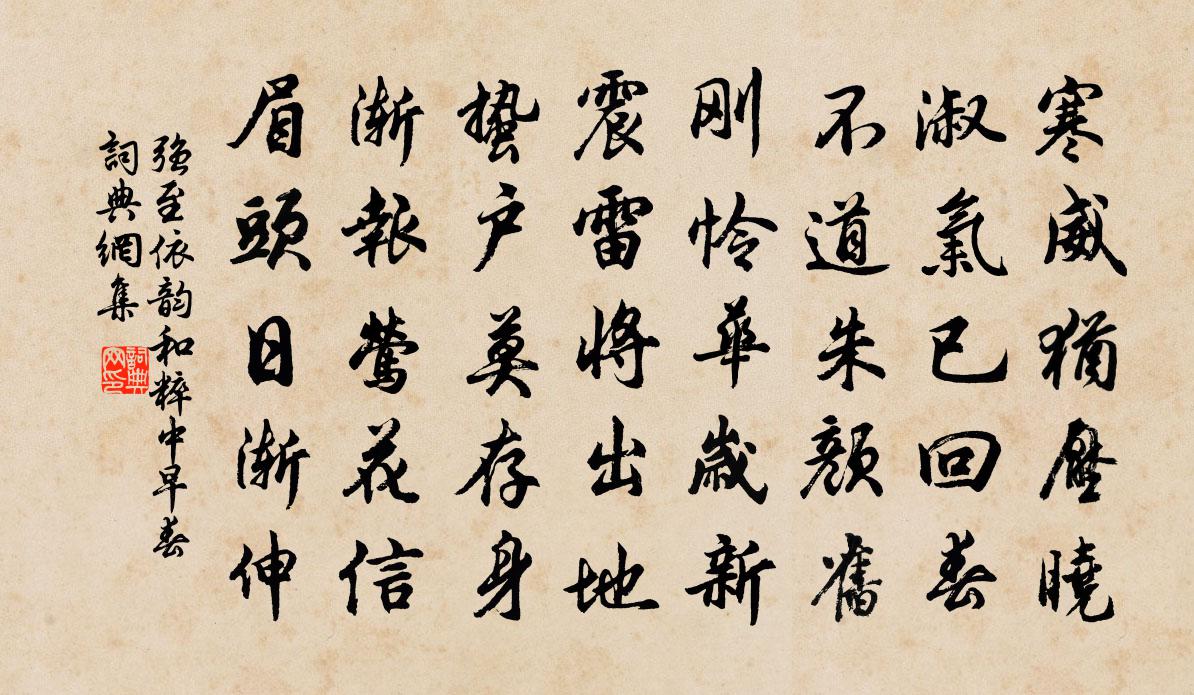 寒威猶壓曉
淑氣已回春
不道朱顏舊
刚憐華歲新
震雷將出地
蟄户莫存身
漸報鶯花信
眉頭日漸伸
强至依韵和粹中早春
詞典網集
詞典网印